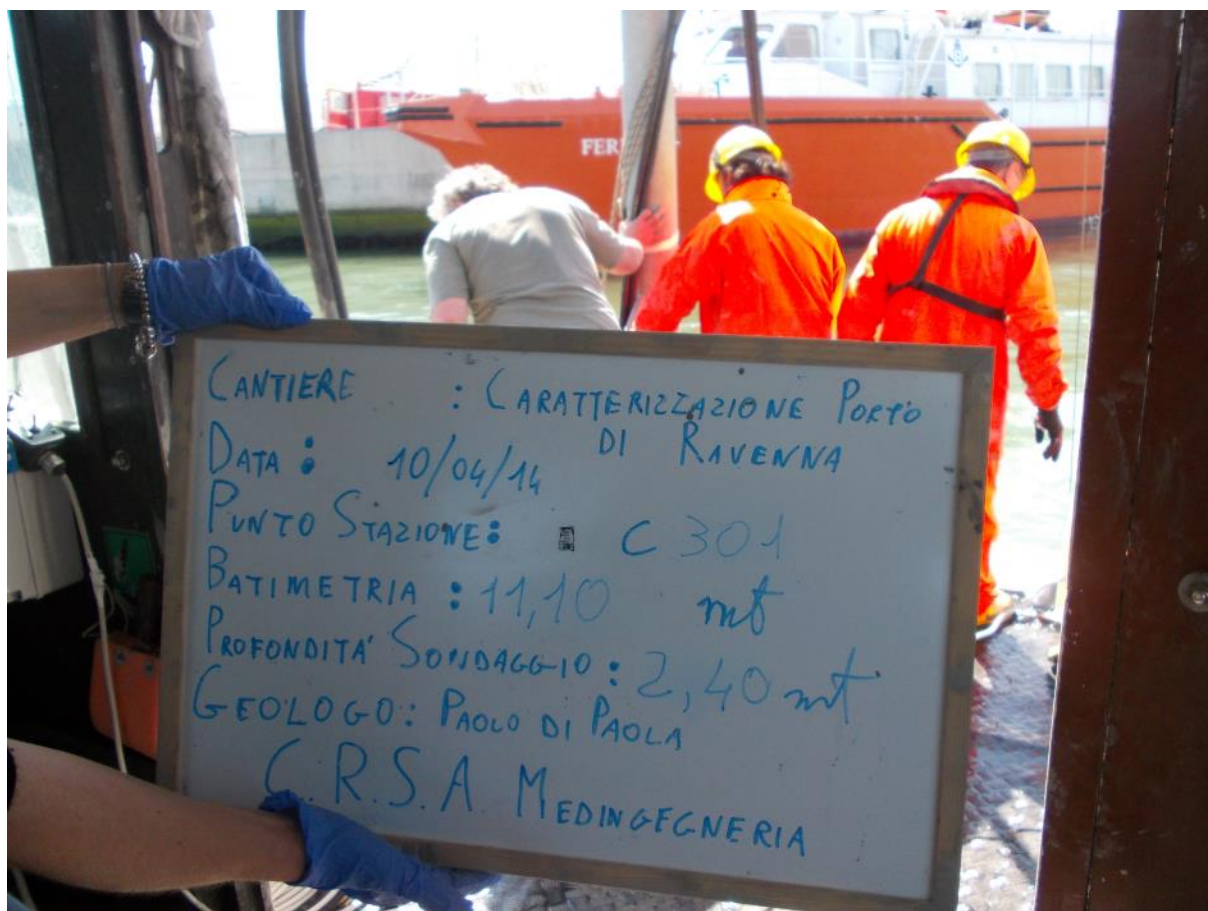 FER
CANTIERE : CARATTERIZZAZIONE PORTO
DI RAVENNA
DATA: 10/04/14
PUNTO STAZIONE: C 301
BATIMETRIA: 11,10 mt
PROFONDITA' SONDAGGIO: 2,40 mt
GEOLOGO: PAOLO DI PAOLA
C.R.S.A. MEDINGEGNERIA